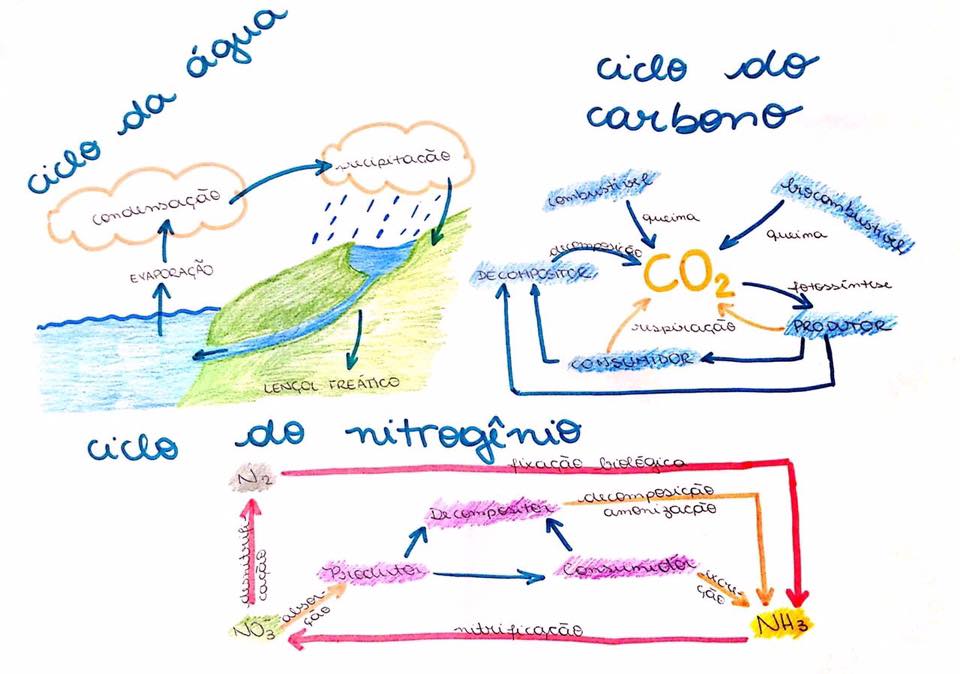 ciclo da água
condensação
precipitação
EVAPORAÇÃO
LENÇOL FREÁTICO
ciclo do
carbono
combustível
queima
biocombustível
queima
decomposição
DECOMPOSITOR
CO₂
fotossíntese
respiração
PRODUTOR
CONSUMIDOR
ciclo do nitrogênio
N₂
fixação biológica
Decompositor
decomposição
amonização
desnitrifi
cação
Produtor
Consumidor
absor
ção
excre-
ção
NO₃
nitrificação
NH₃